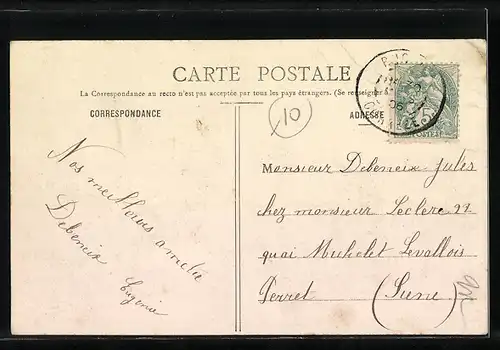 CARTE POSTALE
La Correspondance au recto n'est pas acceptée par tous les pays étrangers. (Se renseigner
CORRESPONDANCE
ADRESSE
10
POSTES
Nos meilleurs
Debeneix
Eugenie
Monsieur Debeneix Jules
chez monsieur Leclerc 27
quai Michelet Levallois
Perret (Seine)